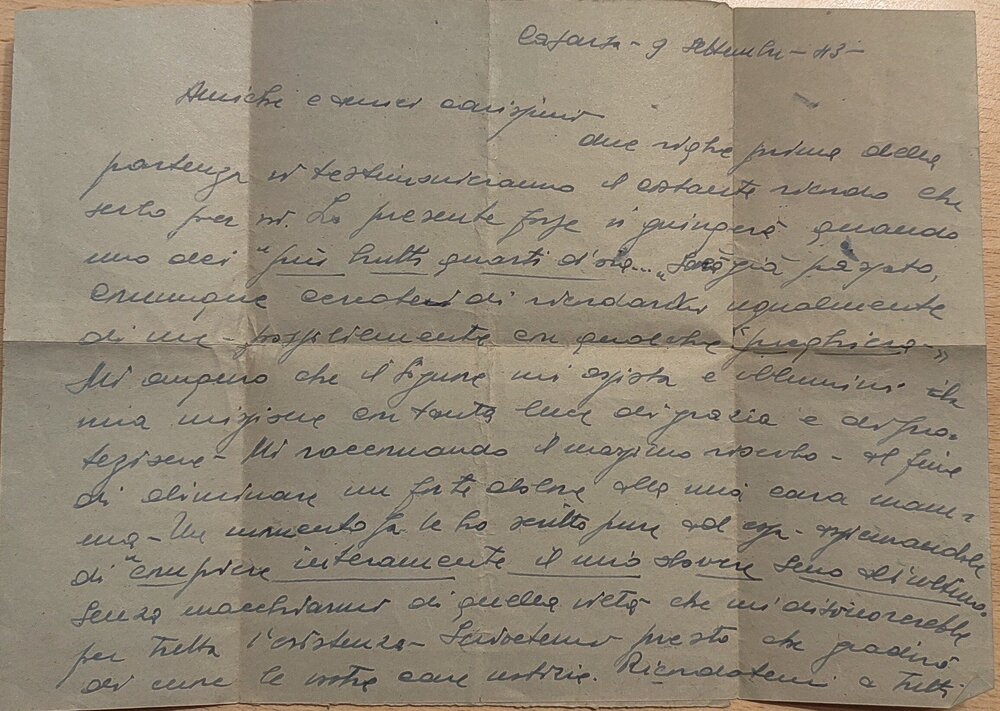 Casarsa - 9 settembre - 43 -
Amiche e amici carissimi
due righe prima della
partenza vi testimonieranno il costante ricordo che
serbo per voi. La presente forse vi giungerà quando
uno dei "più brutti quarti d'ora..." sarà già passato,
comunque cercate di ricordarvi ugualmente
di me - possibilmente con qualche "preghiera -"
Mi auguro che il Signore mi assista e illumini la
mia missione con tanta luce di grazia e di pro=
tezione - Mi raccomando il massimo riserbo - al fine
di eliminare un forte dolore alla mia cara mam=
ma - Un momento fa le ho scritto pure ad essa -
di "compiere interamente il mio dovere sino all'ultimo"
senza macchiarmi di quella viltà che mi disonorerebbe
per tutta l'esistenza - Scrivetemi presto che gradirò
di cuore le vostre care notizie. Ricordatemi a tutti